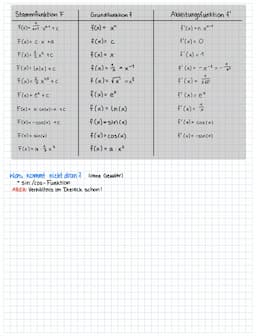 Stammfunktion F
Grundfunktion f
Ableitungsfunktion f'
F(x)= 1/n+1 x^n+1 +c
f(x)= x^n
f'(x)= n·x^n-1
F(x)= c·x +c
f(x)= c
f'(x)= 0
F(x)= 1/2 x² +c
f(x)= x
f'(x)= 1
F(x)= ln(x) +c
f(x)= 1/x = x^-1
F(x)= e^x +c
f(x)= e^x
f'(x)= e^x
f(x)= ln(x)
f'(x)= 1/x
F(x)= -cos(x) +c
f(x)= sin(x)
f'(x)= cos(x)
F(x)= sin(x)
f(x)= cos(x)
f'(x)= -sin(x)
f(x)= a·x²
Was kommt nicht dran? (ohne Gewähr)
* Sin/cos-Funktion
ABER: Verhältnis im Dreieck schon!